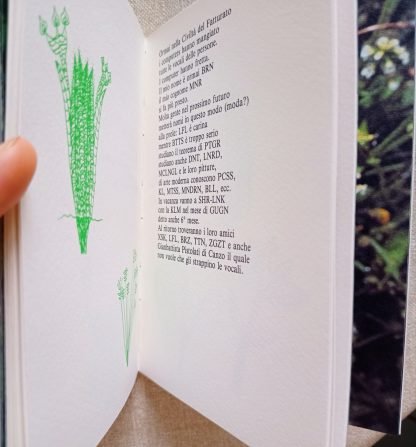 Ormai nella Civiltà del Fatturato
i computers hanno mangiato
tutte le vocali delle persone.
I computer hanno fretta.
Il mio nome è ormai BRN
il mio cognome MNR
si fa più presto.
Molta gente nel prossimo futuro
metterà nomi in questo modo (moda?)
alla prole: LFL è carina
mentre BTTS è troppo serio
studiano il teorema di PTGR
studiano anche DNT, LNRD,
MCLNGL e le loro pitture,
di arte moderna conoscono PCSS,
KL, MTSS, MNDRN, BLL, ecc.
In vacanza vanno a SHR-LNK
con la KLM nel mese di GUGN
detto anche 6° mese.
Al ritorno troveranno i loro amici
NSK, LFL, BRZ, TTN, ZGZT e anche
Gianbattista Pistolati di Canzo il quale
non vuole che gli strappino le vocali.